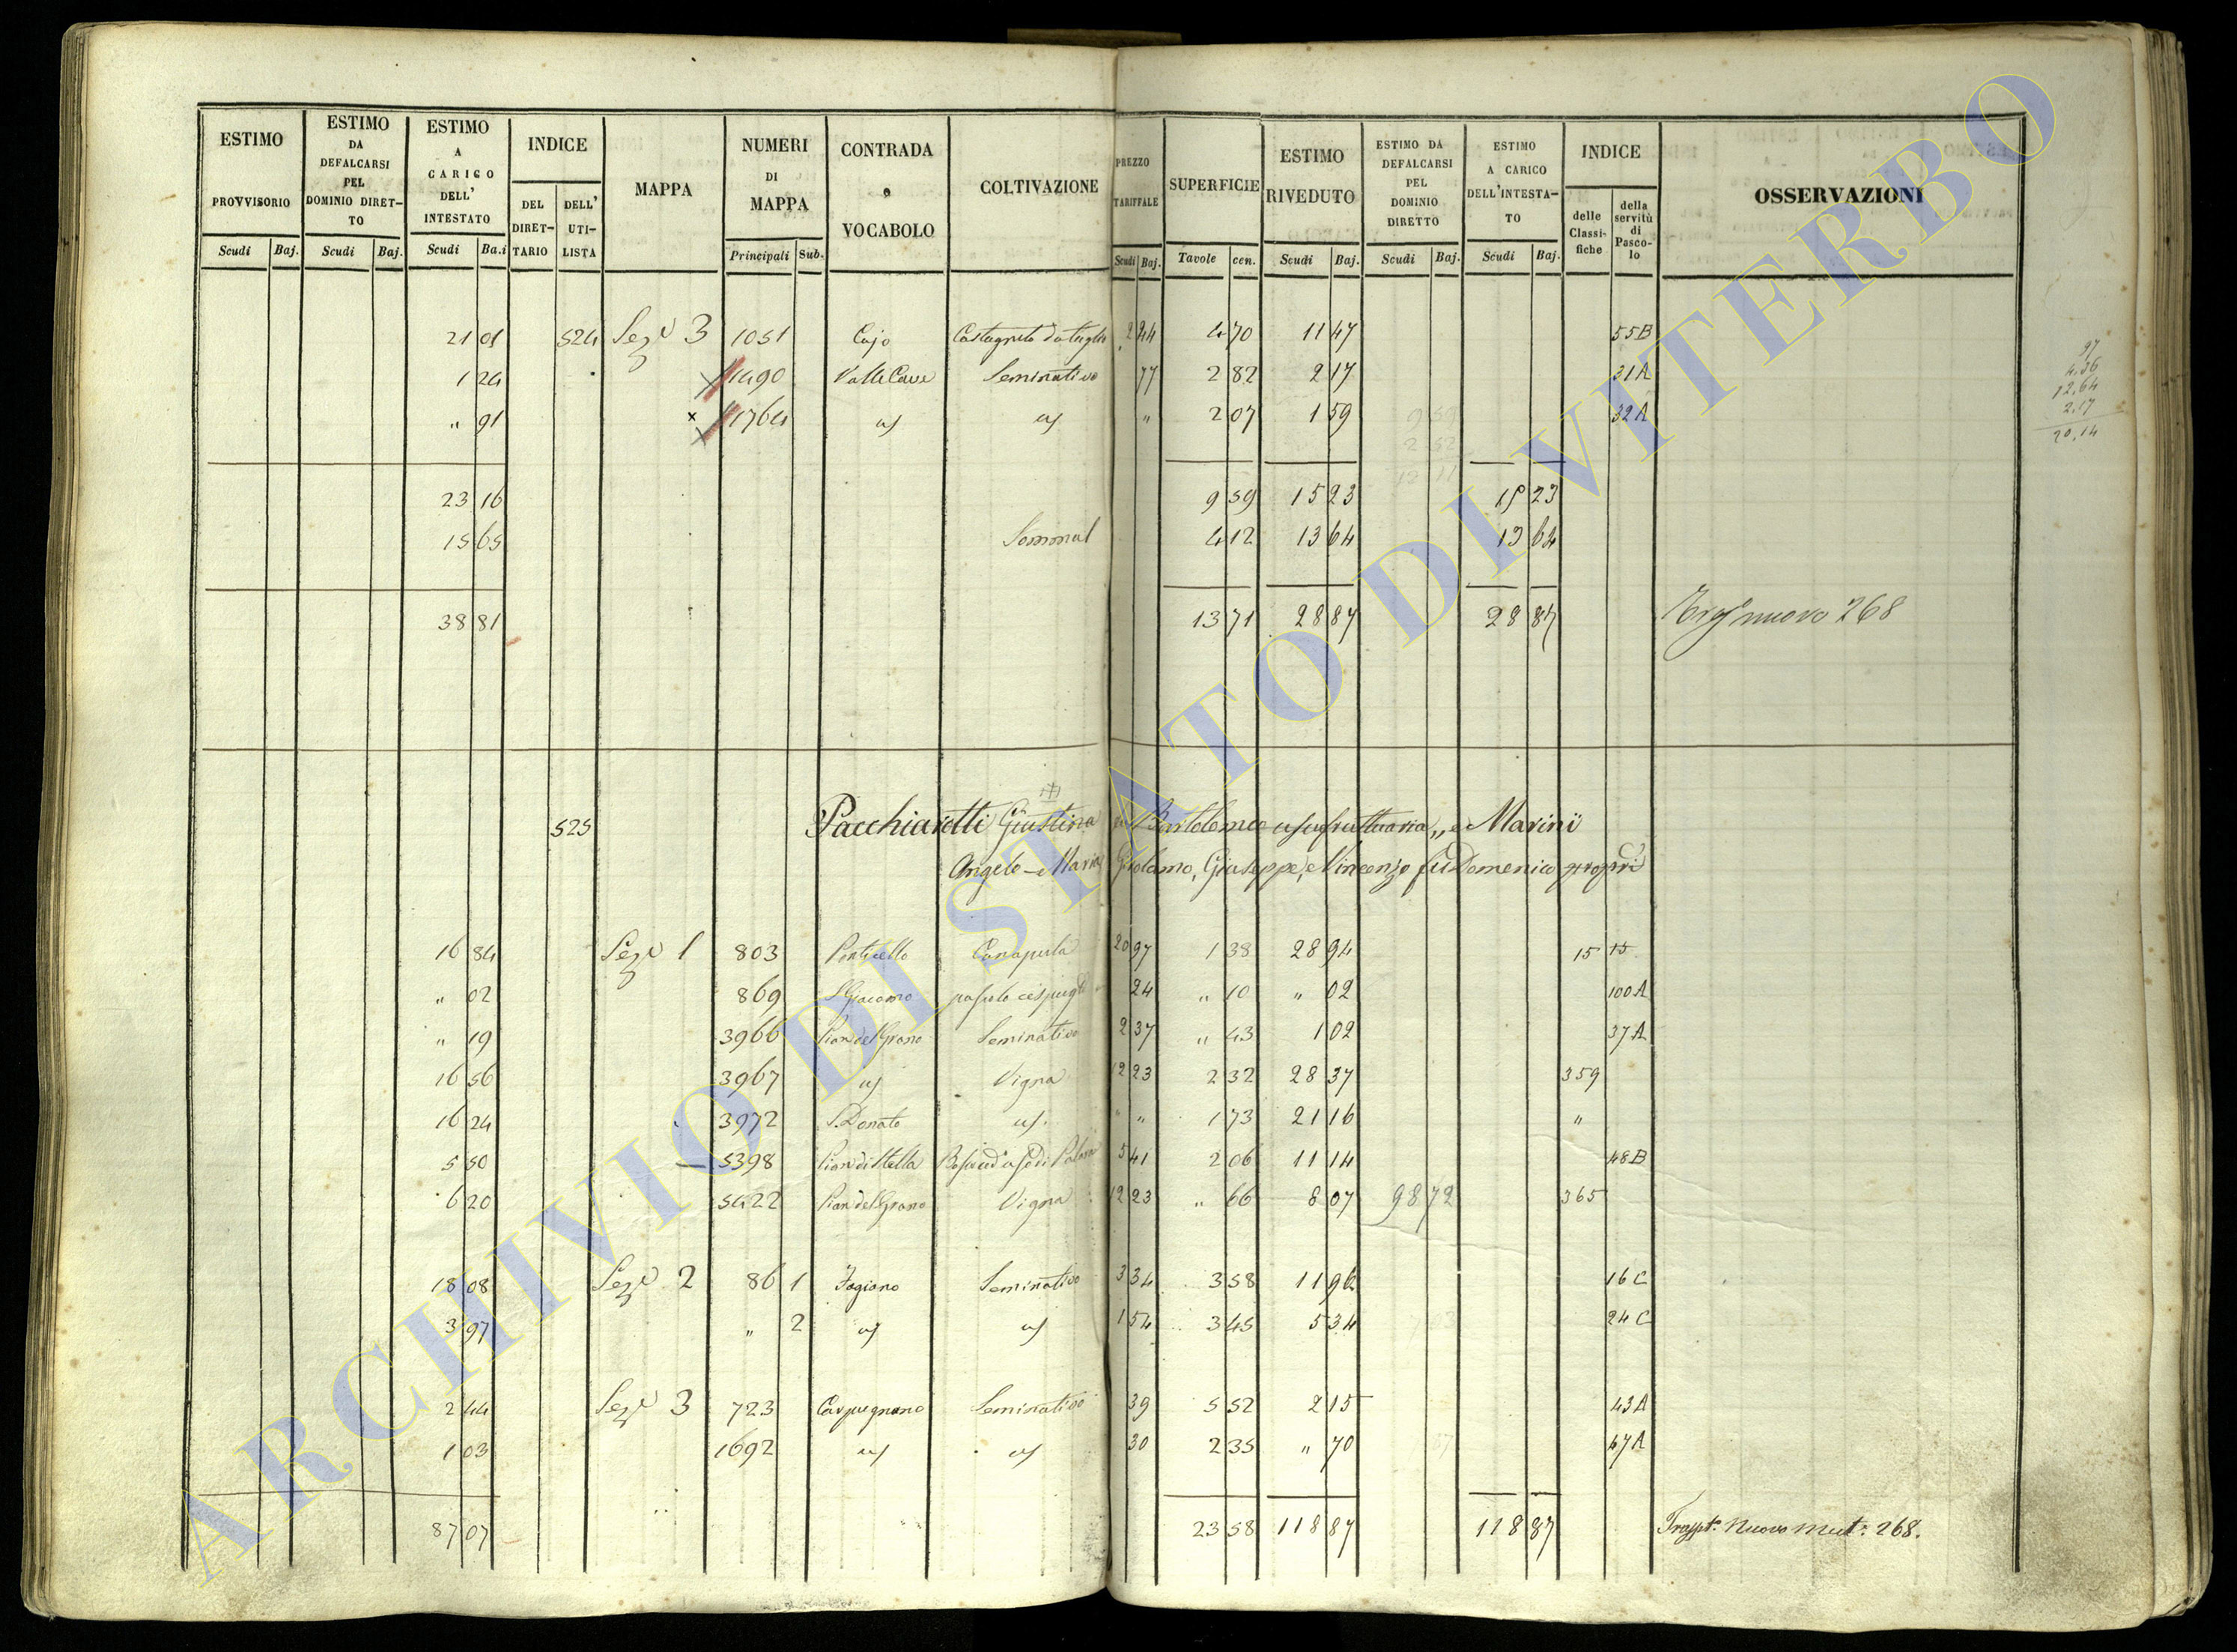 ESTIMO PROVVISORIO | ESTIMO DA DEFALCARSI PEL DOMINIO DIRET-TO | ESTIMO A CARICO DELL' INTESTATO | INDICE | MAPPA | NUMERI DI MAPPA | CONTRADA o VOCABOLO | COLTIVAZIONE | PREZZO TARIFFALE | SUPERFICIE | ESTIMO RIVEDUTO | ESTIMO DA DEFALCARSI PEL DOMINIO DIRETTO | ESTIMO A CARICO DELL'INTESTA-TO | INDICE | OSSERVAZIONI
DEL DIRET-TARIO | DELL' UTI-LISTA | delle Classi-fiche | della servitù di Pasco-lo
Scudi | Baj. | Scudi | Baj. | Scudi | Ba.i | Principali | Sub. | Scudi | Baj. | Tavole | cen. | Scudi | Baj. | Scudi | Baj. | Scudi | Baj.
21 01 524 Sez.e 3 1051 Cajo Castagneto da taglio 2 44 4 70 11 47 55B
1 24 1490 Valle Cave Seminativo 77 2 82 2 17 31A
" 91 1764 " 2 07 1 59 32A
97
4,36
12,64
2,17
20,14
23 16 9 59 15 23 15 23
15 65 Sommal 4 12 13 64 13 64
38 81 13 71 28 87 28 87 nuovo 268
525 Pacchiarotti Giustina Bartolomeo usufruttuaria,, e Marini
Angelo Maria Girolamo, Giuseppe, e Vincenzo fu Domenico propri
16 84 Sez.e 1 803 Ponticello Canapula 20 97 1 38 28 94 15 15
" 02 869 S. Giacomo pascolo cespugl 24 " 10 " 02 100A
" 19 3966 Pian del Grano Seminativo 2 37 " 43 1 02 37A
16 56 3967 Vigna 12 23 2 32 28 37 359
16 24 3972 S. Donato " " 1 73 21 16 "
5 50 5398 Pian di Stella 5 41 2 06 11 14 48B
6 20 5422 Pian del Grano Vigna 12 23 " 66 8 07 98 72 365
18 08 Sez.e 2 86 1 Fagiano Seminativo 3 34 3 58 11 96 16C
3 97 " 2 1 54 3 45 5 34 24C
2 44 Sez.e 3 723 Carpegnano Seminativo 39 5 52 2 15 43A
1 03 1692 30 2 35 " 70 47A
87 07 23 58 118 87 118 87 Trappt.o Nuovo Mut.e 268.
ARCHIVIO DI STATO DI VITERBO